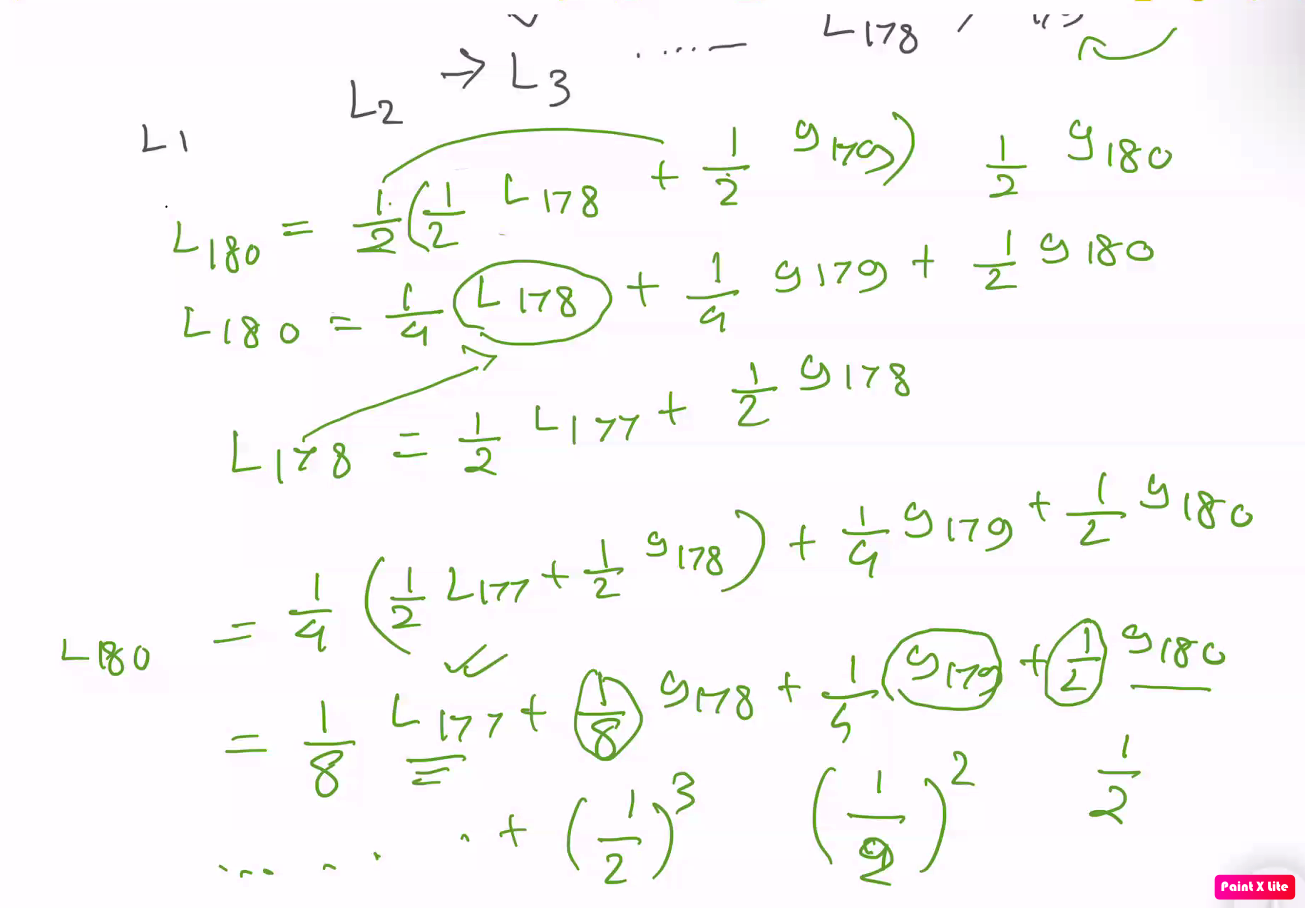 L178 ,
L1 L2 → L3 ......—
L180 = 1/2 (1/2 L178 + 1/2 y179) 1/2 y180
L180 = 1/4 L178 + 1/4 y179 + 1/2 y180
L178 = 1/2 L177 + 1/2 y178
L180 = 1/4 (1/2 L177 + 1/2 y178) + 1/4 y179 + 1/2 y180
= 1/8 L177 + 1/8 y178 + 1/4 y179 + 1/2 y180
... . . . + (1/2)^3 (1/2)^2 1/2
Paint X Lite